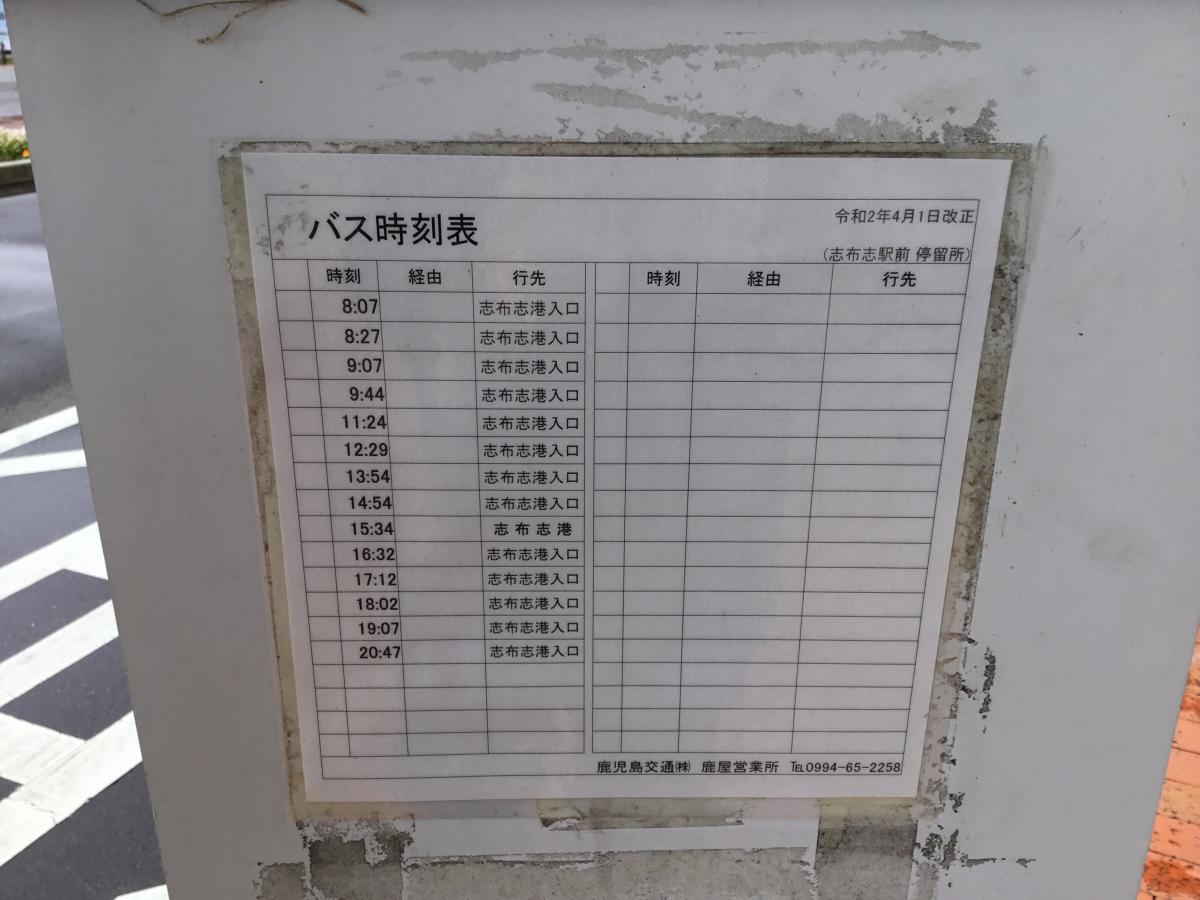 バス時刻表
令和2年4月1日改正
(志布志駅前 停留所)
時刻 経由 行先 時刻 経由 行先
8:07 志布志港入口
8:27 志布志港入口
9:07 志布志港入口
9:44 志布志港入口
11:24 志布志港入口
12:29 志布志港入口
13:54 志布志港入口
14:54 志布志港入口
15:34 志布志港
16:32 志布志港入口
17:12 志布志港入口
18:02 志布志港入口
19:07 志布志港入口
20:47 志布志港入口
鹿児島交通㈱ 鹿屋営業所 ℡0994-65-2258